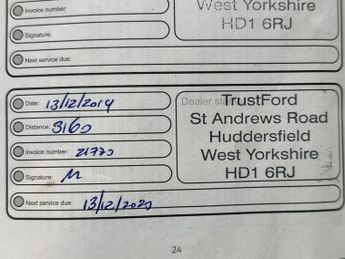 West Yorkshire
Invoice number:
HD1 6RJ
Signature:
Next service due:
Date: 13/12/2019
Dealer sta
TrustFord
St Andrews Road
Distance: 3160
Huddersfield
Invoice number: 21770
West Yorkshire
HD1 6RJ
Signature:
Next service due: 13/12/2020
24